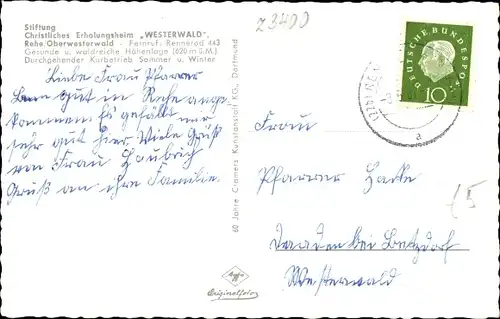 Stiftung
Christliches Erholungsheim „WESTERWALD",
Rehe/Oberwesterwald - Fernruf: Rennerod 443
Gesunde u. waldreiche Höhenlage (620 m ü.M.)
Durchgehender Kurbetrieb Sommer u. Winter
23400
Liebe Frau Pfarrer
gut in Rehe ange
kommen Es gefällt mir
sehr gut hier. Viele Grüß
von Frau Haubrich
Gruß an ihre Familie.
60 Jahre Cramers Kunstanstalt KG., Dortmund
DEUTSCHE BUNDESPOST
10
a
Frau
Pfarrer
Daaden bei Betzdorf
Westerwald
£5
Agfa
Originalfoto